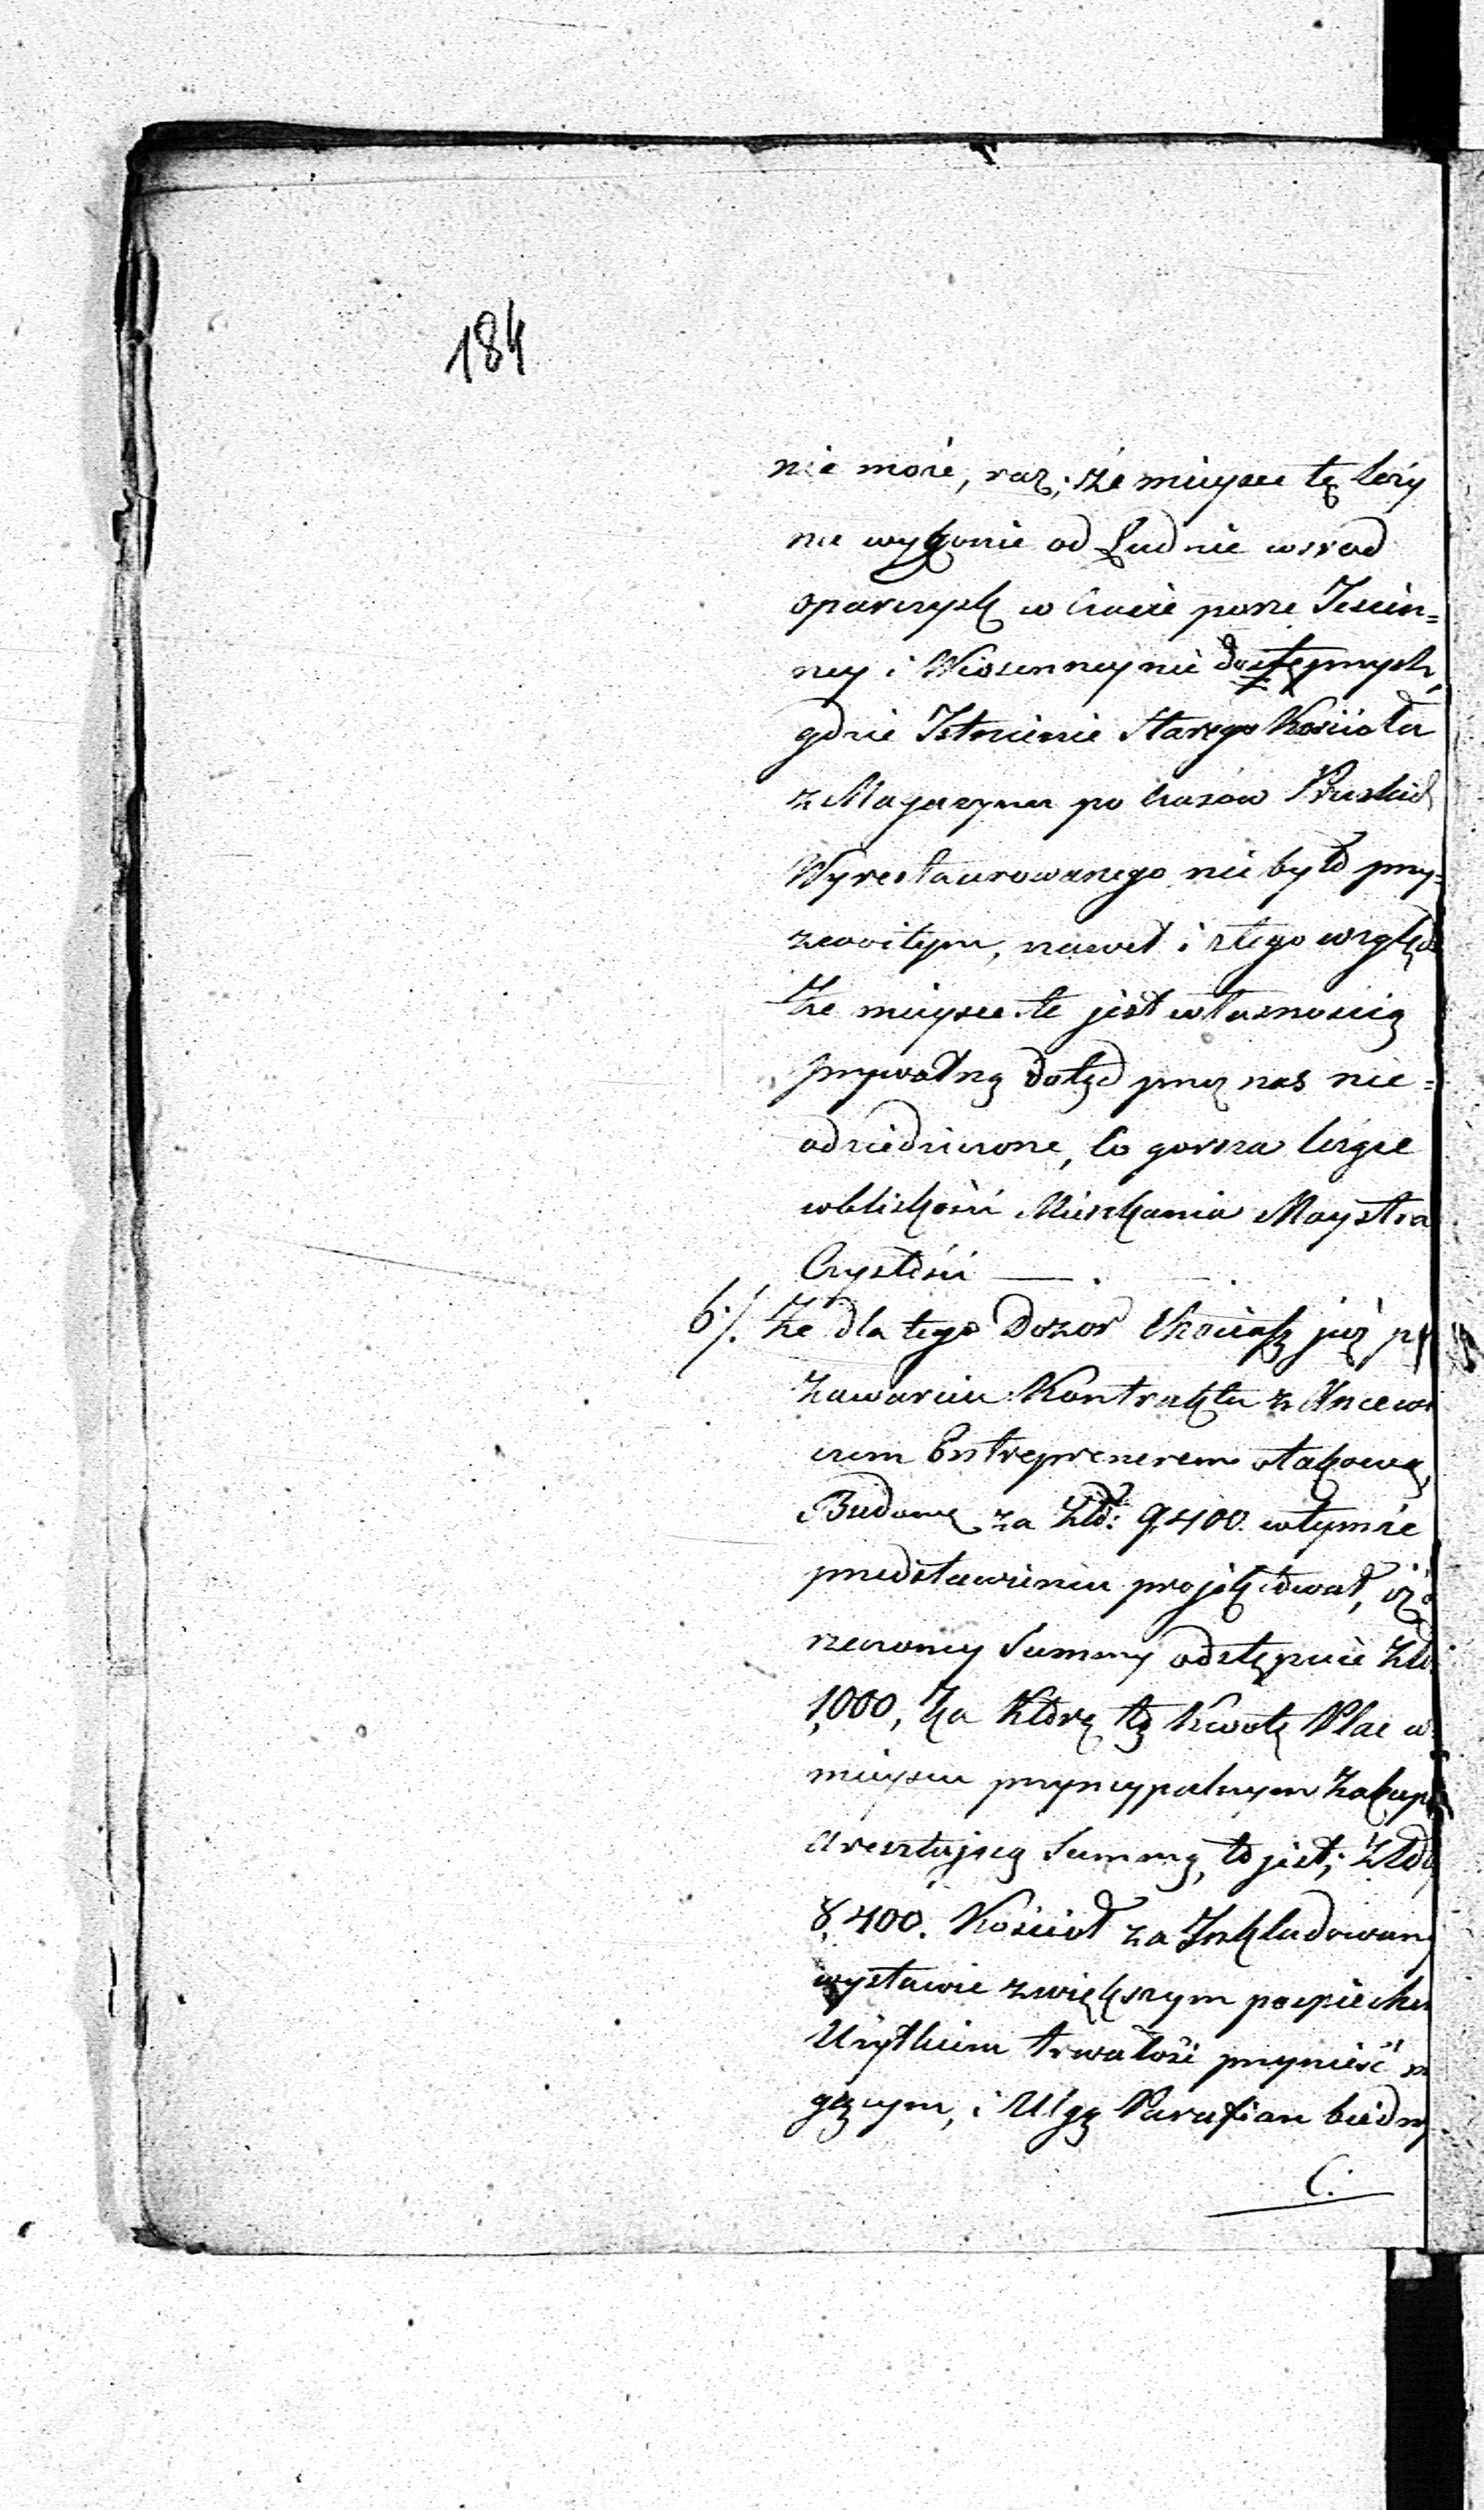 184
nie może, raz; że mieysce te leży
na wygonie od Ludnie wsrod
oparzysk w czasie porze Jesien=
ney i Wiosenney nie dostępnych,
gdzie Istnienie Starego Kościoła
z Magazynu po czasów Pruskich
Wyrestaurowanego nie było przy=
zwoitym, nawet i ztego wzglę
Że mieysce te jest własnością
prywatną dotąd przez nas nie=
odziedziczone, co gorsza leżące
wbliskości Mieszkania Maystra
Czystości
b./. Że dla tego Dozor Chociasz już p
zawarciu Kontraktu z
czem Entreprenerem otakową
Budowę za Złt: 9,400. wtymże
przedstawieniu projektował, iż
rzeczoney Summy odstępuie Zł
1,000, Za Którę tę Kwotę Plac w
mieyscu pryncypalnym Zakup
Aresztującą Summą, to jest; Złt
8,400. Kościoł za Inkludowan
wystawie zwiększym pospieche
Użytkiem trwałość przynieść m
gącym, i Ulgą Parafian biedny
C.